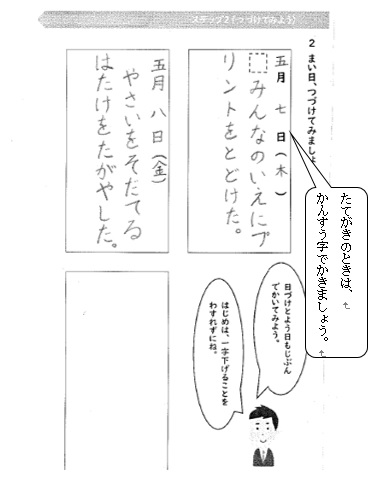 ステップ2(つづけてみよう)
2 まい日、つづけてみましょ
五月 七 日(木)
みんなのいえにプ
リントをとどけた。
五月 八 日(金)
やさいをそだてる
はたけをたがやした。
たてがきのときは、
かんすう字でかきましょう。
日づけとよう日もじぶん
でかいてみよう。
はじめは、一字下げることを
わすれずにね。